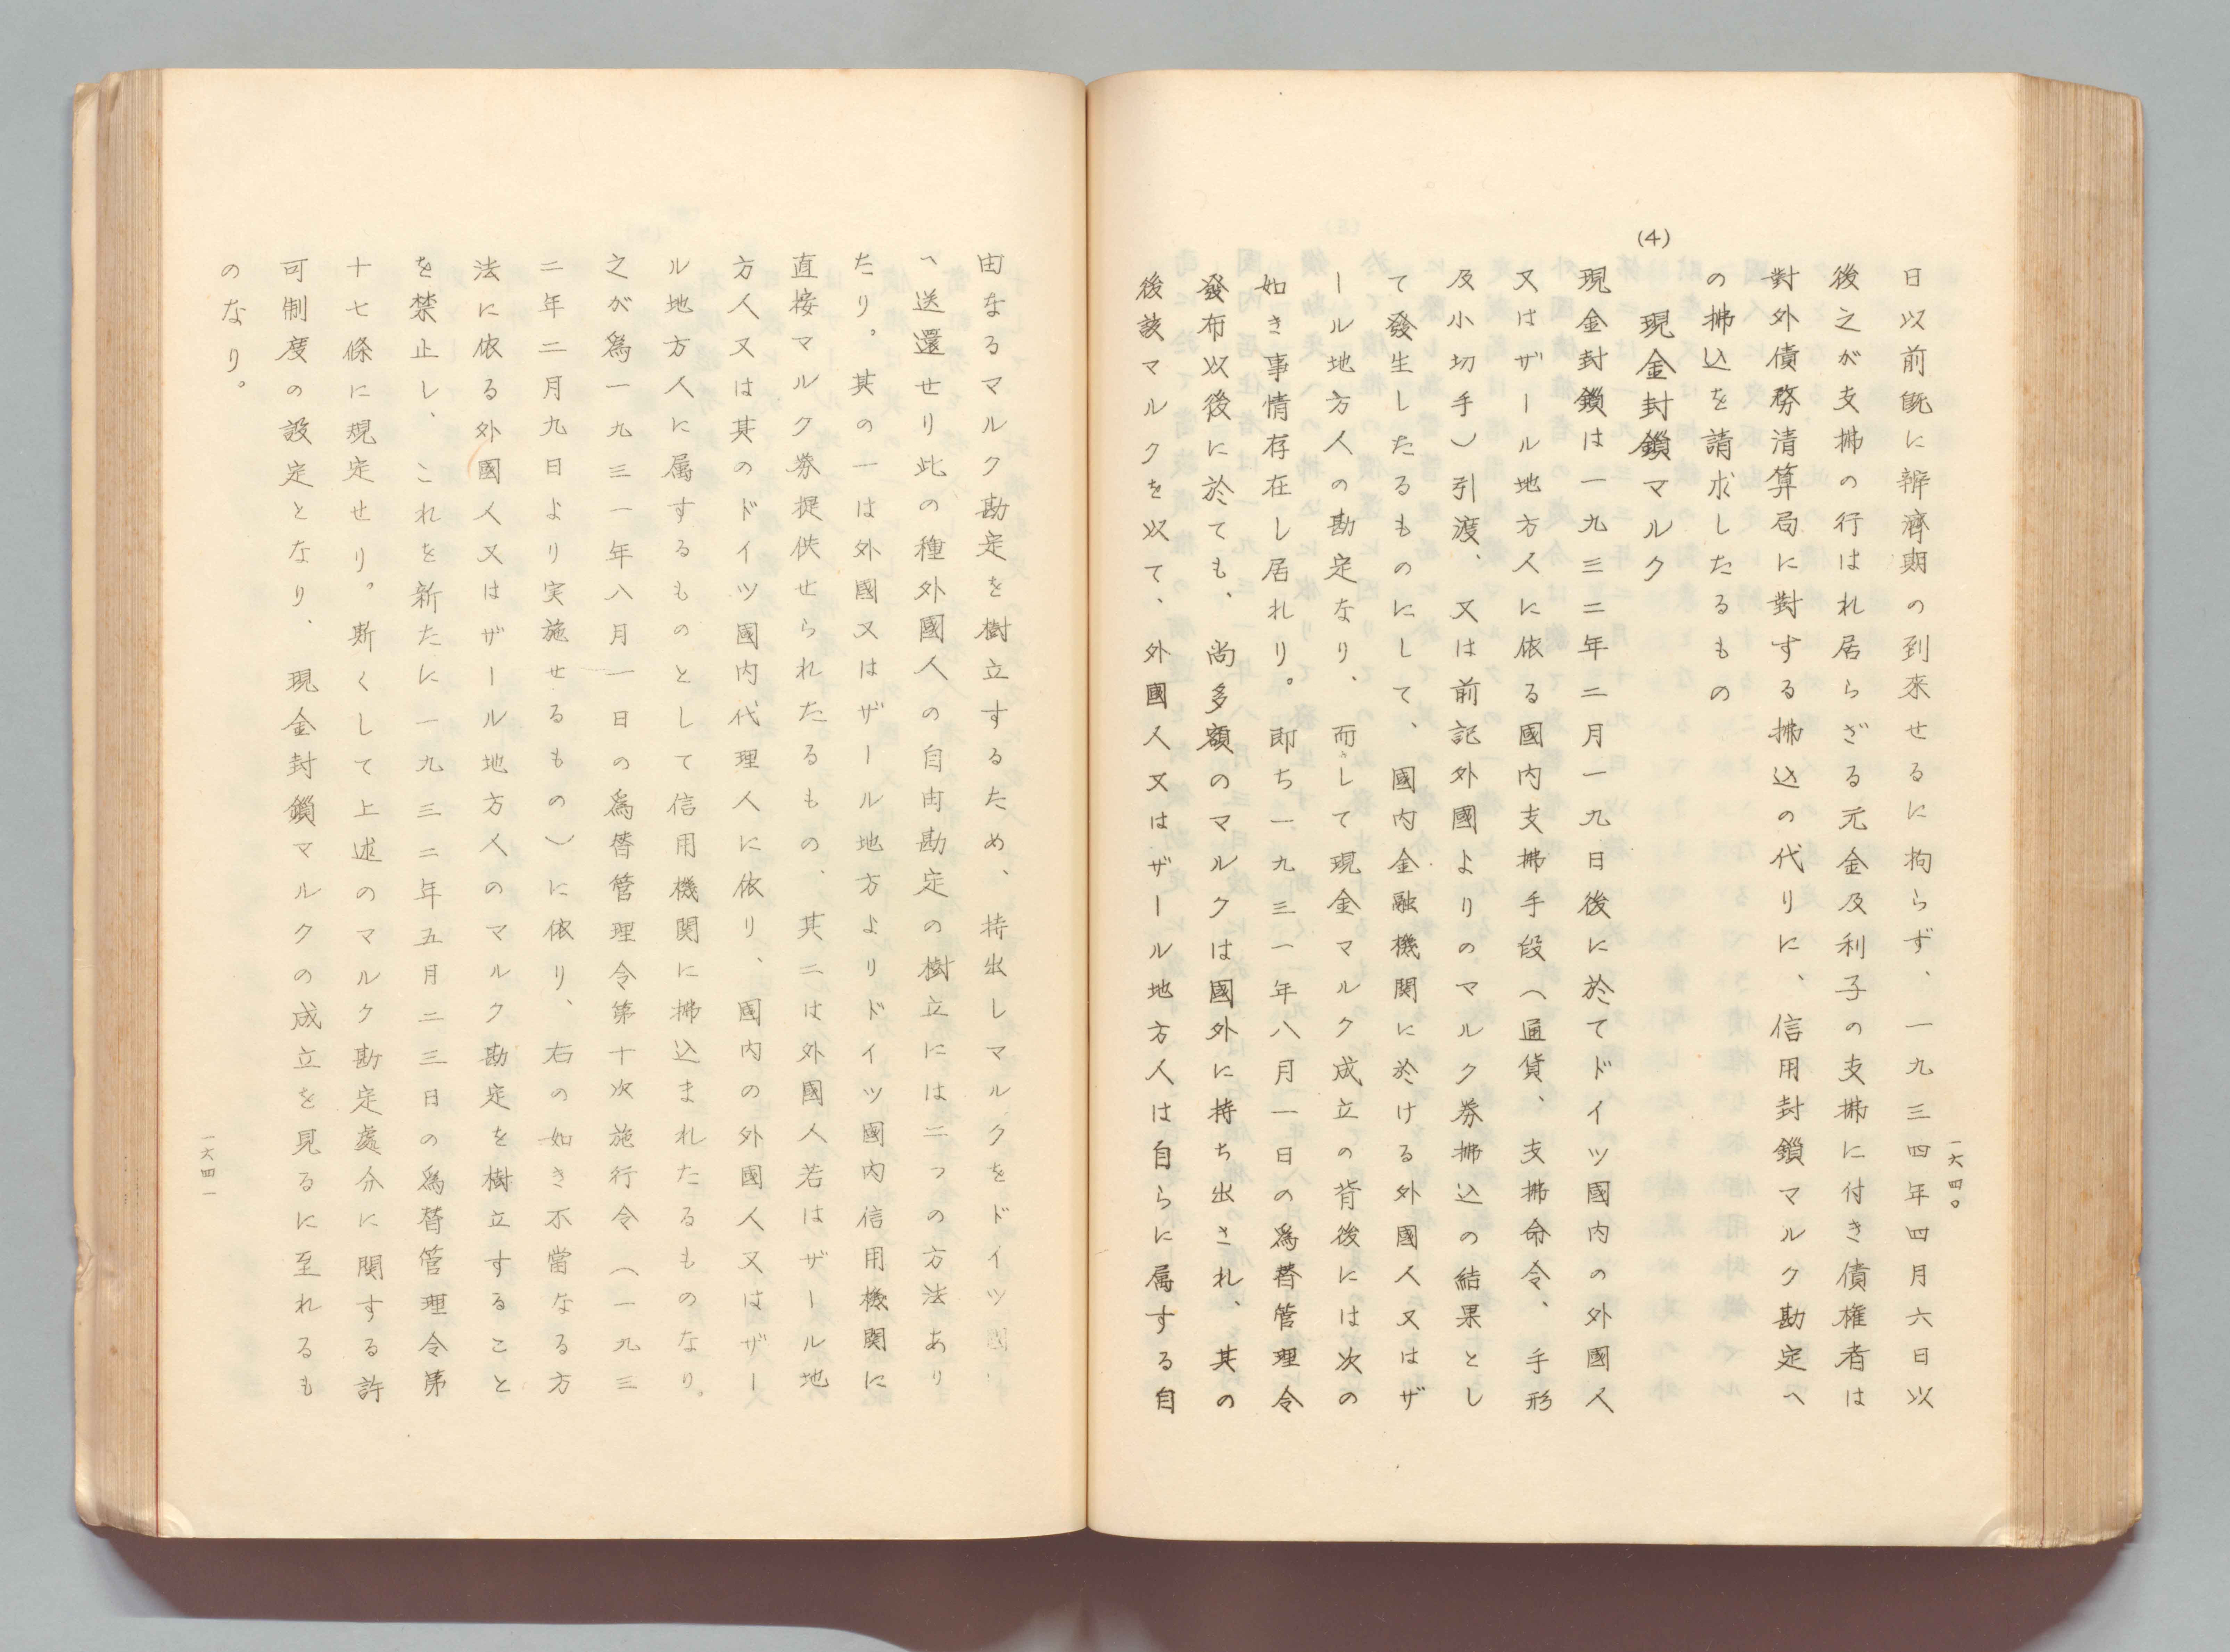 一六四〇
日以前旣に辨濟期の到來せるに拘らず、一九三四年四月六日以
後之が支拂の行はれ居らざる元金及利子の支拂に付き債権者は
對外債務清算局に對する拂込の代りに、信用封鎖マルク勘定へ
の拂込を請求したるもの
(4)
現金封鎖マルク
現金封鎖は一九三二年二月一九日後に於てドイツ國内の外國人
又はザール地方人に依る國内支拂手段（通貨、支拂命令、手形
及小切手）引渡、又は前記外國よりのマルク券拂込の結果とし
て發生したるものにして、國内金融機関に於ける外國人又はザ
ール地方人の勘定なり、而して現金マルク成立の背後には次の
如き事情存在し居れり。即ち一九三一年八月一日の爲替管理令
發布以後に於ても、尚多額のマルクは國外に持ち出され、其の
後該マルクを以て、外國人又はザール地方人は自らに属する自
由なるマルク勘定を樹立するため、持出しマルクをドイツ國
へ送還せり此の種外國人の自由勘定の樹立には二つの方法あり
たり。其の一は外國又はザール地方よりドイツ國内信用機関に
直接マルク券提供せられたるもの、其二は外國人若はザール地
方人又は其のドイツ國内代理人に依り、國内の外國人又はザー
ル地方人に属するものとして信用機関に拂込まれたるものなり。
之が爲一九三一年八月一日の爲替管理令第十次施行令（一九三
二年二月九日より実施せるもの）に依り、右の如き不當なる方
法に依る外國人又はザール地方人のマルク勘定を樹立すること
を禁止し、これを新たに一九三二年五月二三日の爲替管理令第
十七條に規定せり。斯くして上述のマルク勘定處分に関する許
可制度の設定となり、現金封鎖マルクの成立を見るに至れるも
のなり。
一六四一